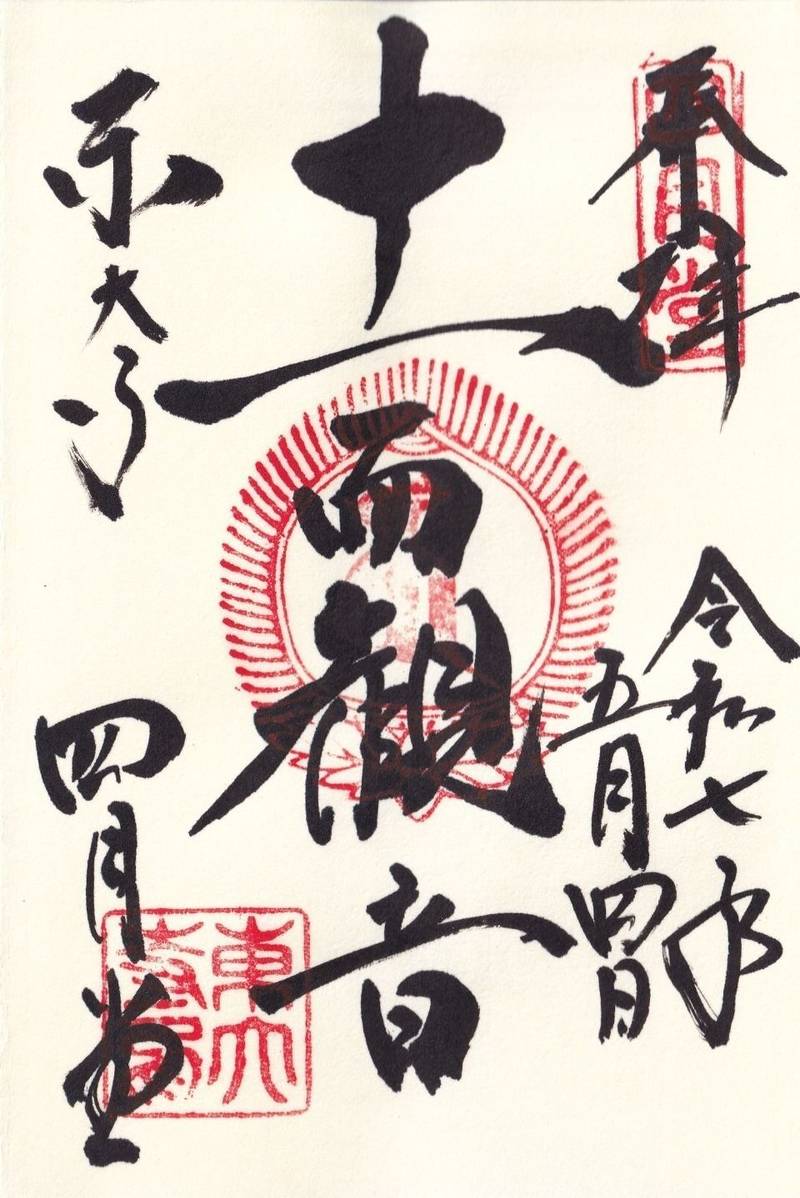 奉拝
四月堂
令和七年
五月四日
十一面観音
東大寺
四月堂
東大寺